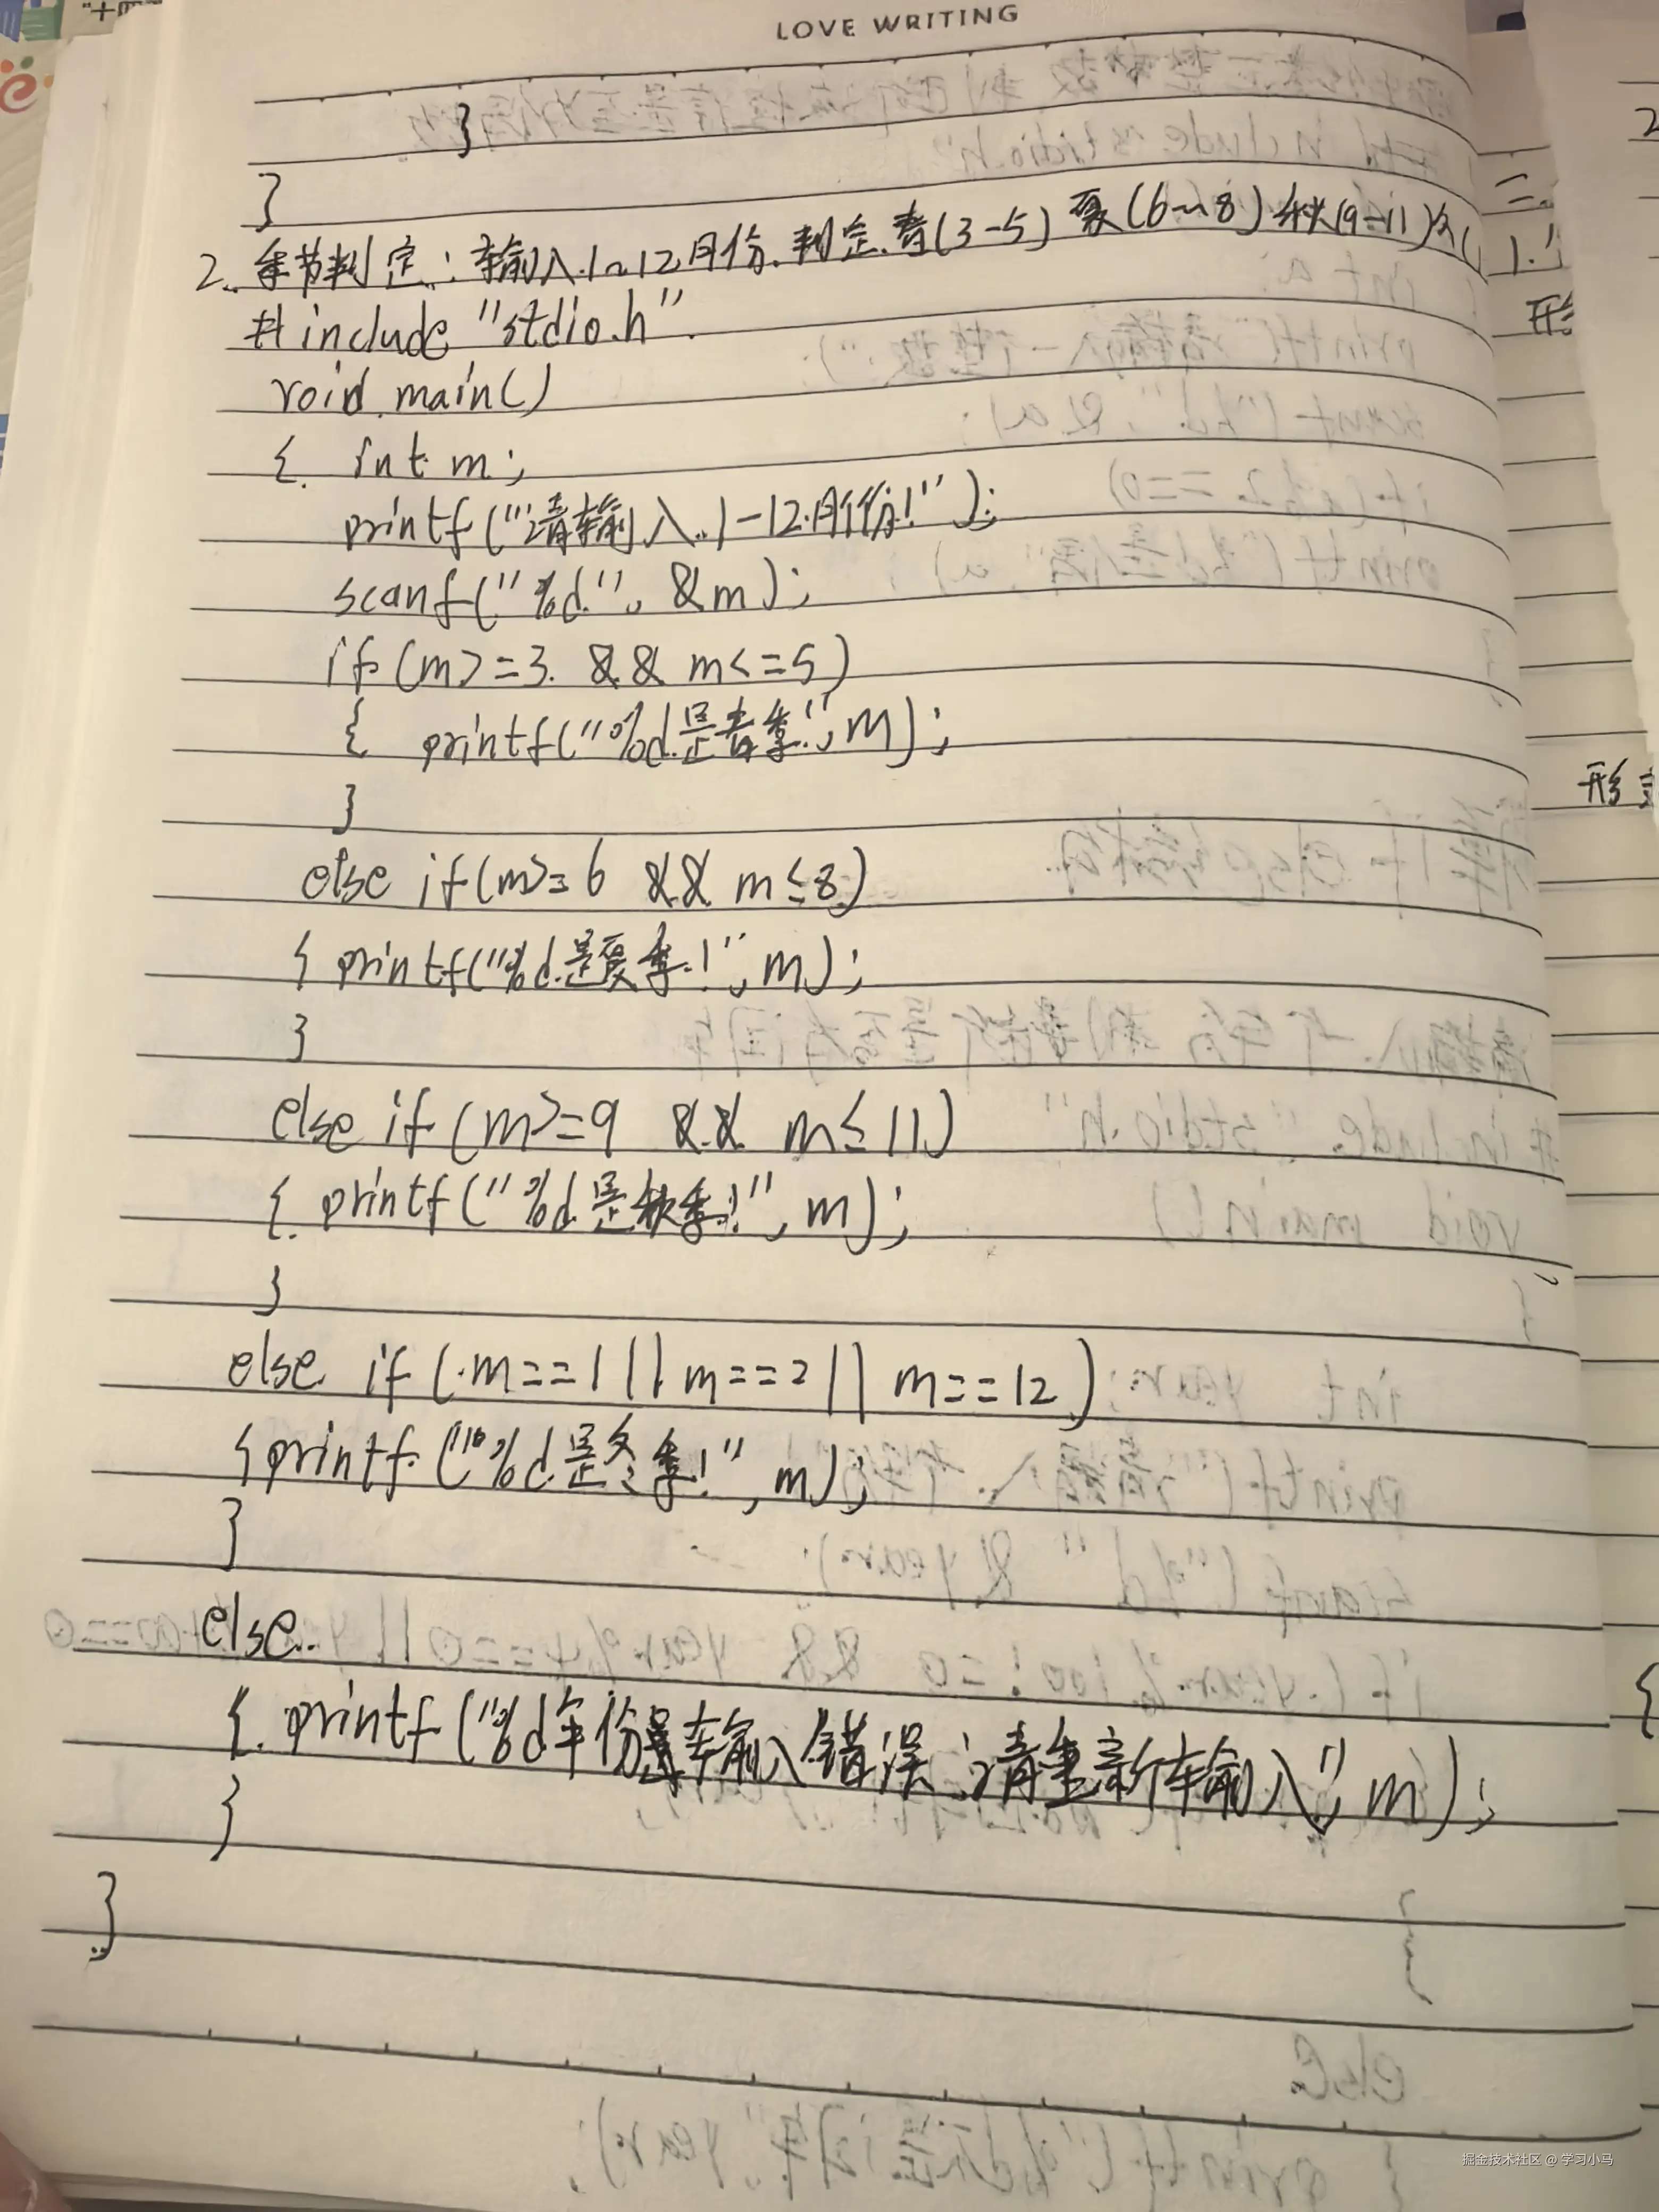 LOVE WRITING
}
}
2. 季节判定：输入1~12月份.判定.春(3-5)夏(6~8)秋(9-11)冬(
#include "stdio.h"
void main()
{ int m;
printf("请输入1-12月份!");
scanf("%d", &m);
if(m>=3 && m<=5)
{ printf("%d是春季!",m);
}
else if(m>=6 && m≤8)
{ printf("%d是夏季!",m);
}
else if(m>=9 && m≤11)
{ printf("%d是秋季!",m);
}
else if(m==1||m==2||m==12)
{printf("%d是冬季!",m);
}
else
{ printf("%d年份是输入错误,请重新输入",m);
}
}
二.
1.
形
形
{
掘金技术社区 @ 学习小马